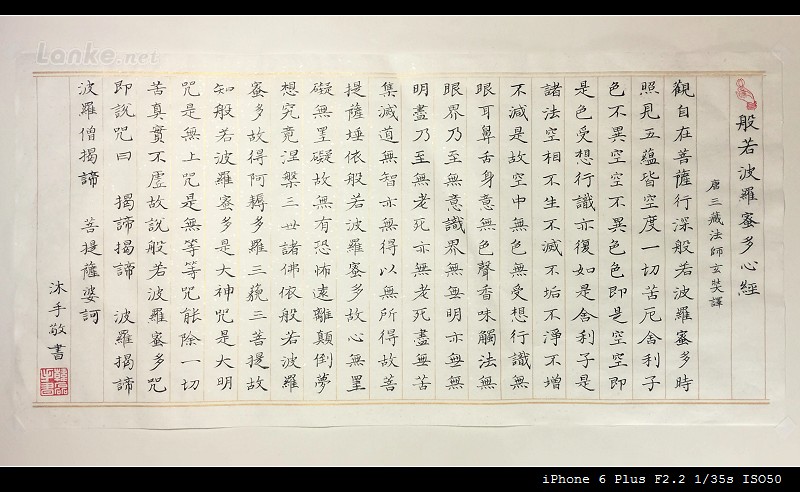 Lanke.net
般若波羅蜜多心經
唐三藏法師玄奘譯
觀自在菩薩行深般若波羅蜜多時
照見五蘊皆空度一切苦厄舍利子
色不異空空不異色色即是空空即
是色受想行識亦復如是舍利子是
諸法空相不生不滅不垢不淨不增
不減是故空中無色無受想行識無
眼耳鼻舌身意無色聲香味觸法無
眼界乃至無意識界無無明亦無無
明盡乃至無老死亦無老死盡無苦
集滅道無智亦無得以無所得故菩
提薩埵依般若波羅蜜多故心無罣
礙無罣礙故無有恐怖遠離顛倒夢
想究竟涅槃三世諸佛依般若波羅
蜜多故得阿耨多羅三藐三菩提故
知般若波羅蜜多是大神咒是大明
咒是無上咒是無等等咒能除一切
苦真實不虛故說般若波羅蜜多咒
即說咒曰 揭諦揭諦 波羅揭諦
波羅僧揭諦 菩提薩婆訶
沐手敬書
iPhone 6 Plus F2.2 1/35s ISO50